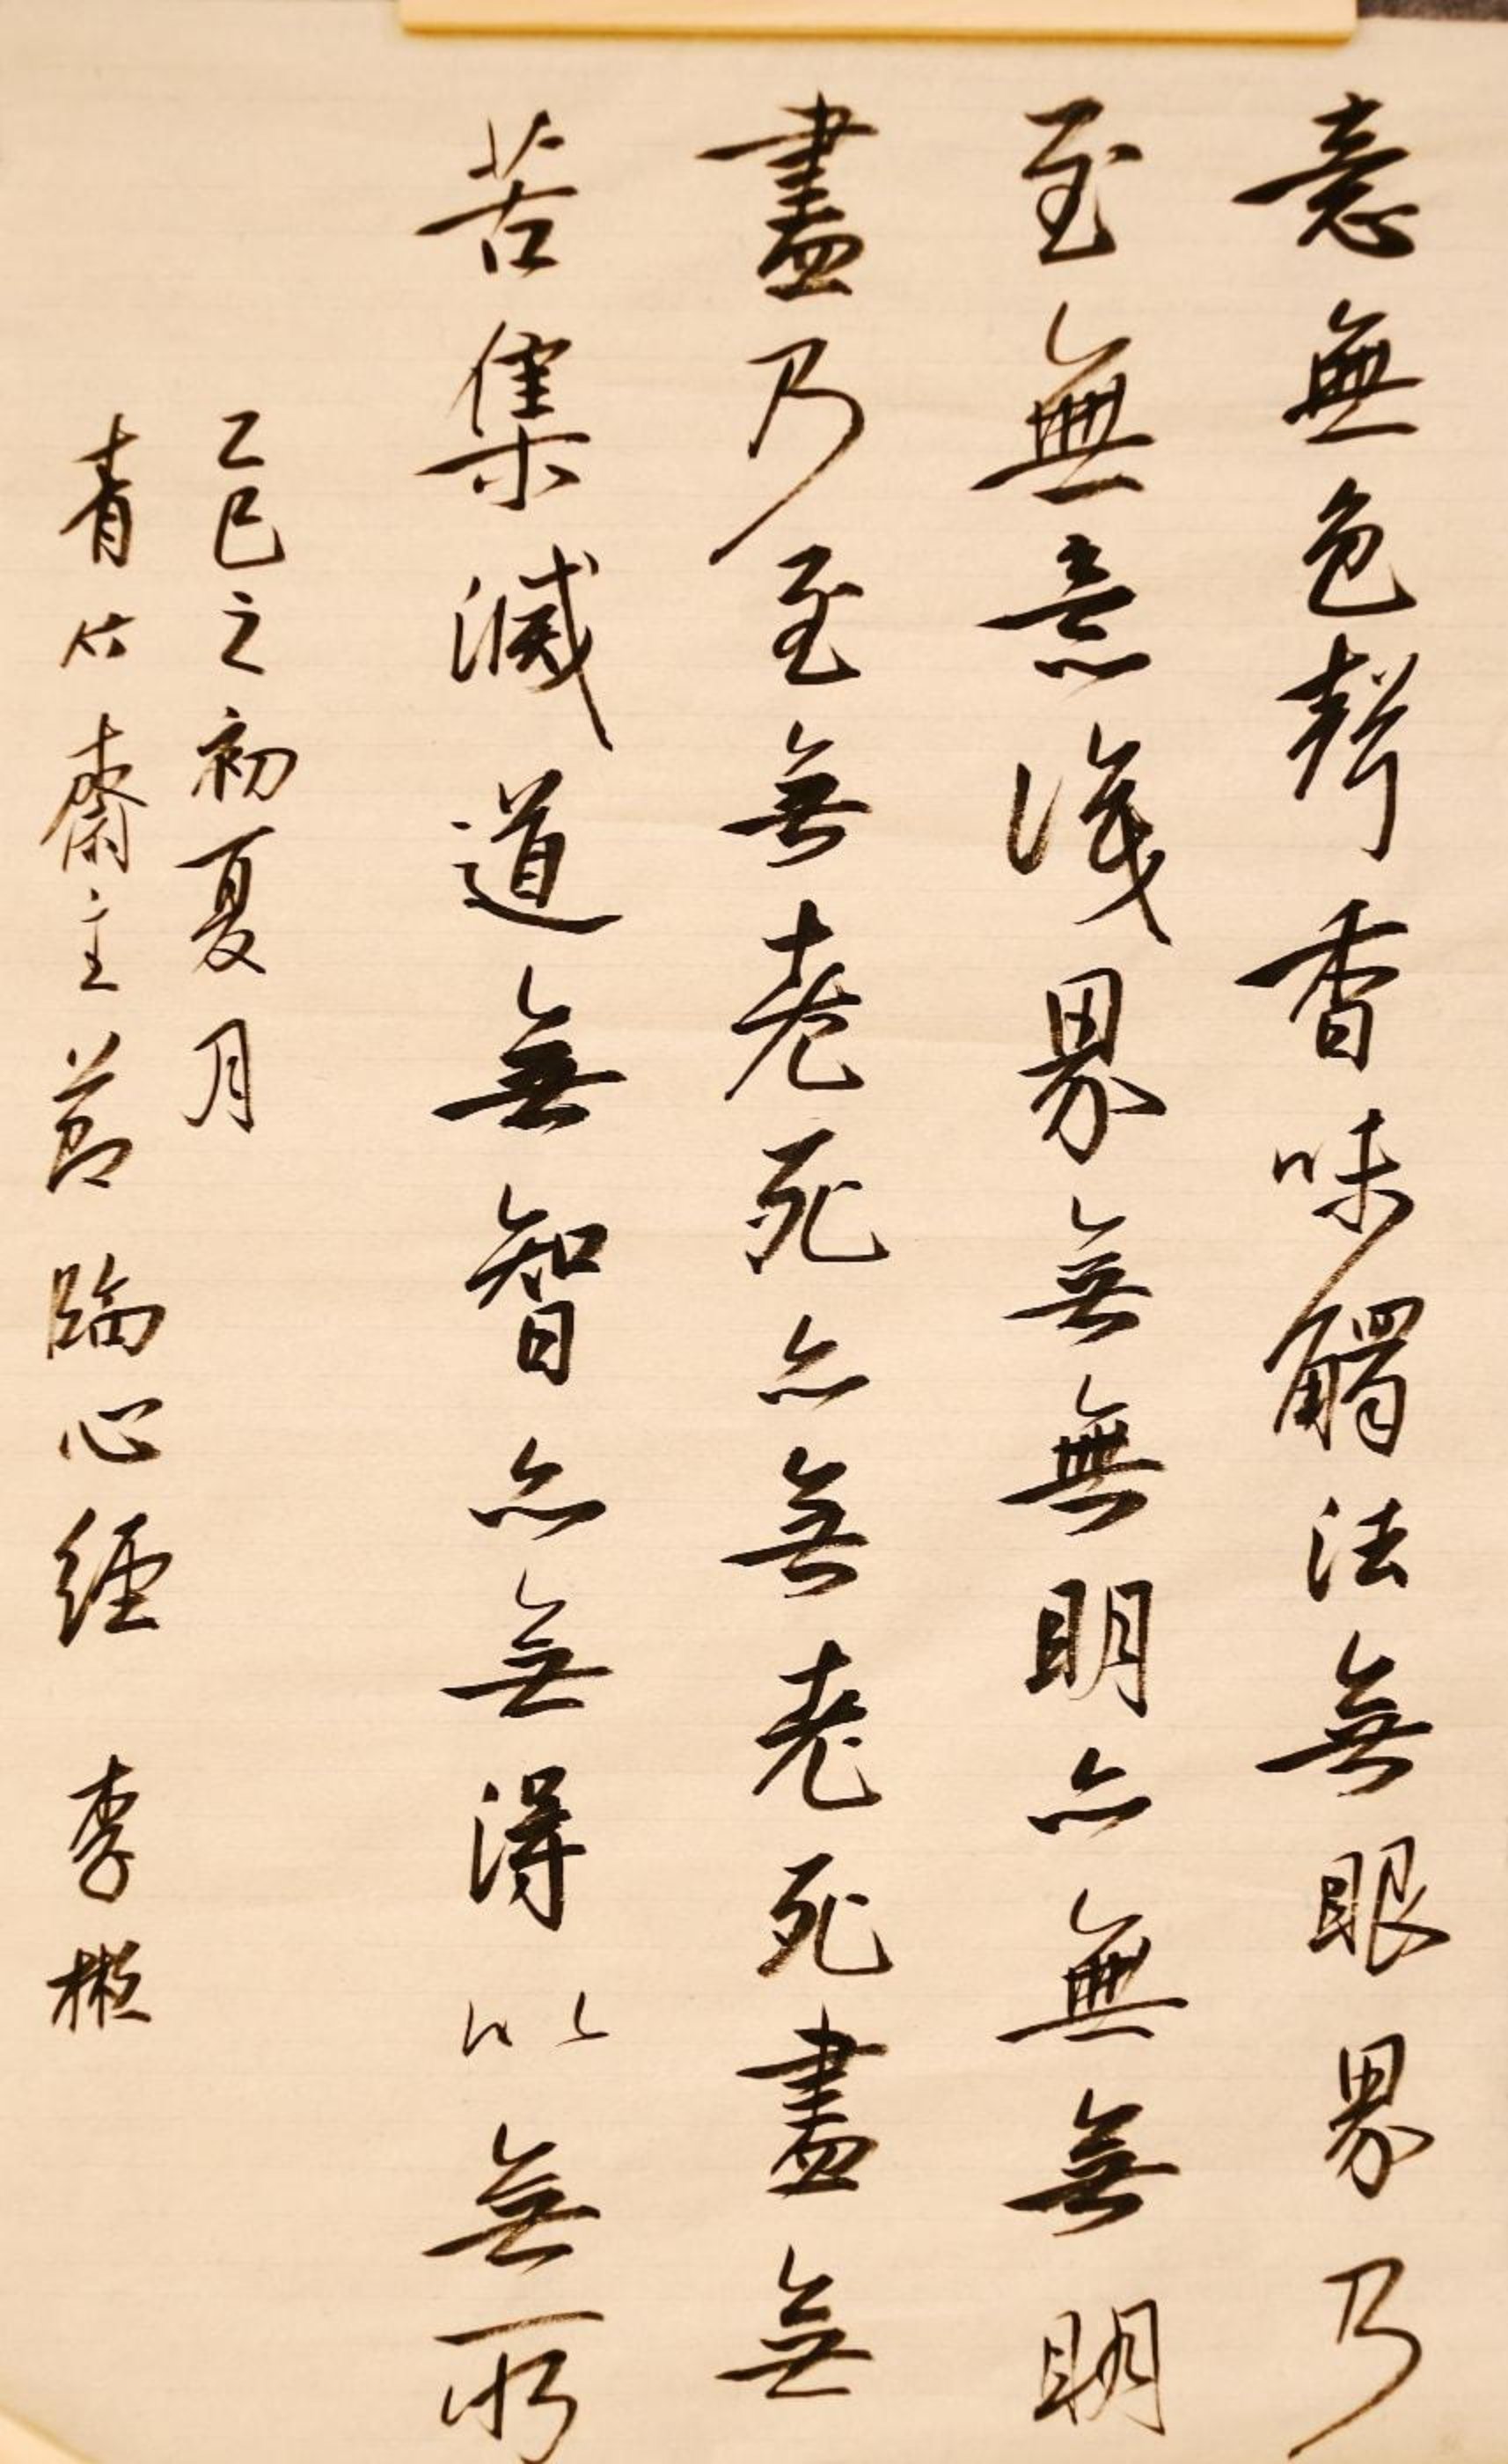 意無色聲香味觸法無眼界乃
至無意識界無無明亦無無明
盡乃至無老死亦無老死盡無
苦集滅道無智亦無得以無所
乙巳之初夏月
青竹齋主節臨心經 李